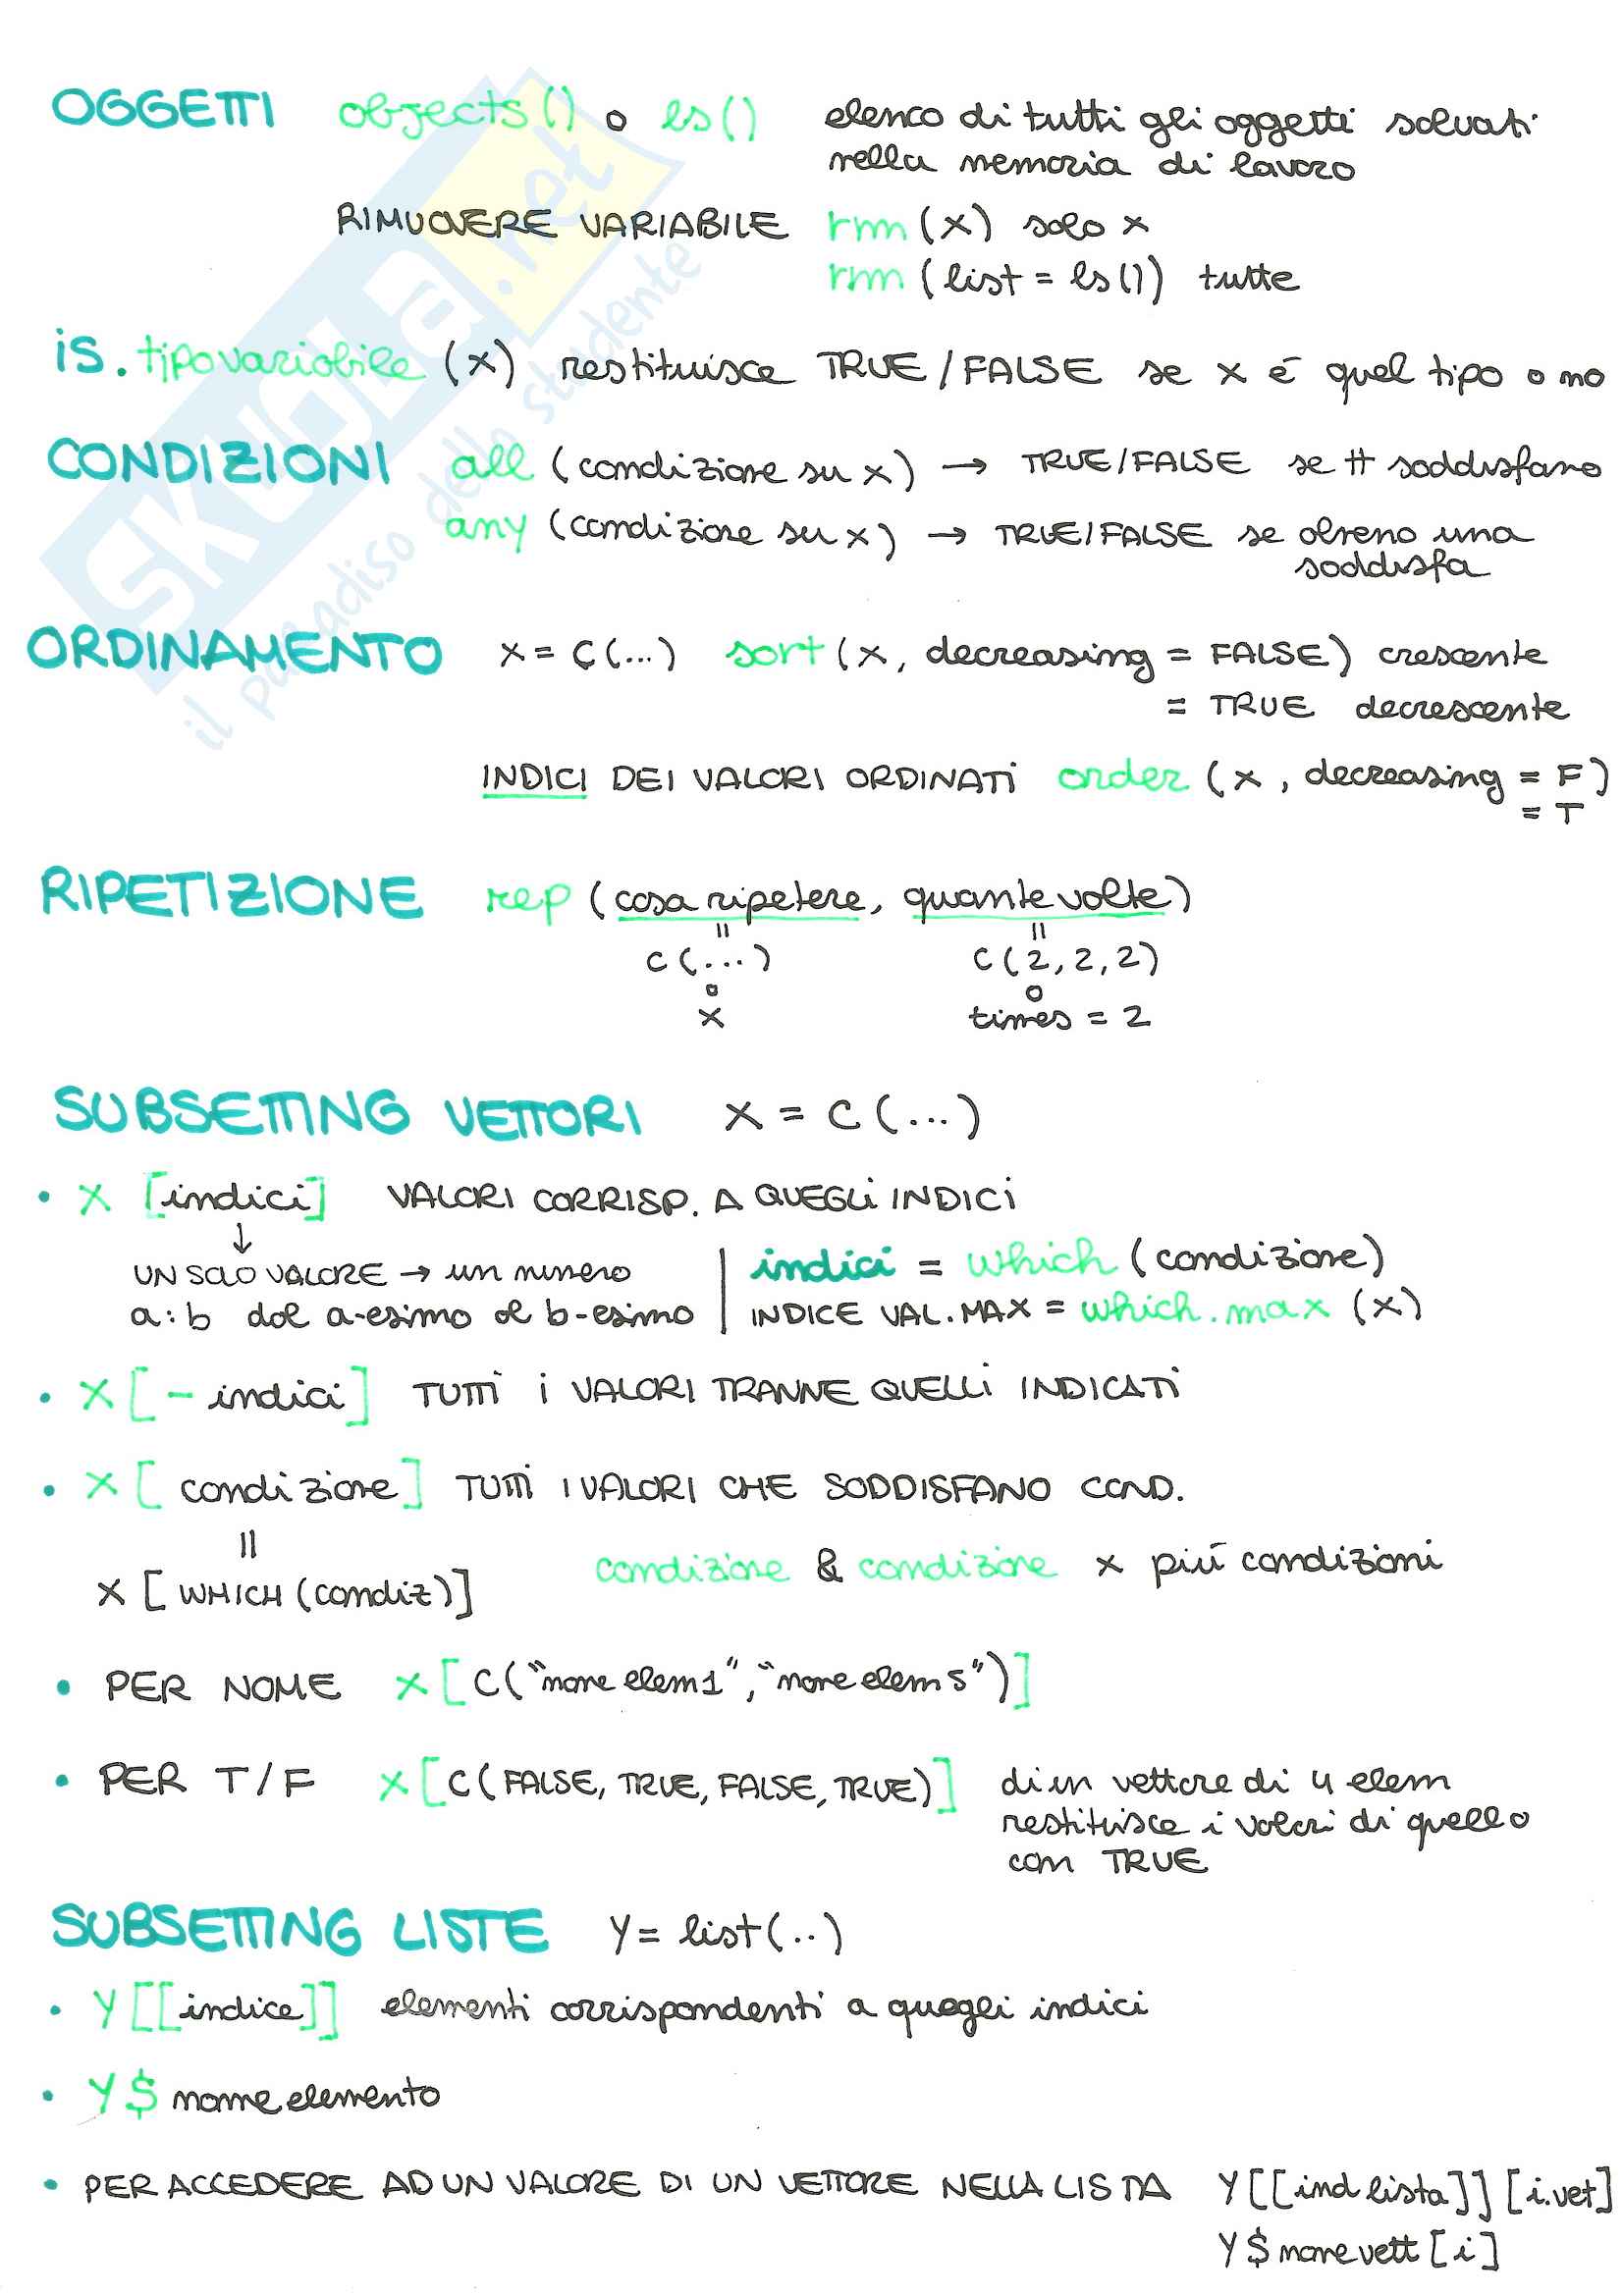 OGGETTI objects() o ls() elenco di tutti gli oggetti salvati
nella memoria di lavoro
RIMUOVERE VARIABILE rm (x) solo x
rm (list = ls()) tutte
is. tipovariabile (x) restituisce TRUE/FALSE se x è quel tipo o no
CONDIZIONI all (condizione su x) → TRUE/FALSE se tt soddisfano
any (condizione su x) → TRUE/FALSE se almeno una
soddisfa
ORDINAMENTO x = c(...) sort (x, decreasing = FALSE) crescente
= TRUE decrescente
INDICI DEI VALORI ORDINATI order (x, decreasing = F)
= T
RIPETIZIONE rep (cosa ripetere, quante volte)
= =
c (...) c (2, 2, 2)
o o
x times = 2
SUBSETTING VETTORI x = c (...)
• x [indici] VALORI CORRISP. A QUEGLI INDICI
↓
UN SOLO VALORE → un numero | indici = which (condizione)
a:b dal a-esimo al b-esimo | INDICE VAL. MAX = which.max (x)
• x [- indici] TUTTI I VALORI TRANNE QUELLI INDICATI
• x [condizione] TUTTI I VALORI CHE SODDISFANO COND.
=
condizione & condizione x più condizioni
x [WHICH (condiz)]
• PER NOME x [c("nome elem1", "nome elem5")]
• PER T/F x [c(FALSE, TRUE, FALSE, TRUE)] di un vettore di 4 elem
restituisce i valori di quello
con TRUE
SUBSETTING LISTE Y = list(..)
• Y [[indice]] elementi corrispondenti a quegli indici
• Y $ nome elemento
• PER ACCEDERE AD UN VALORE DI UN VETTORE NELLA LISTA Y [[ind lista]] [i.vet]
Y $ nome vett [i]
SKUOLA.net
il paradiso dello studente